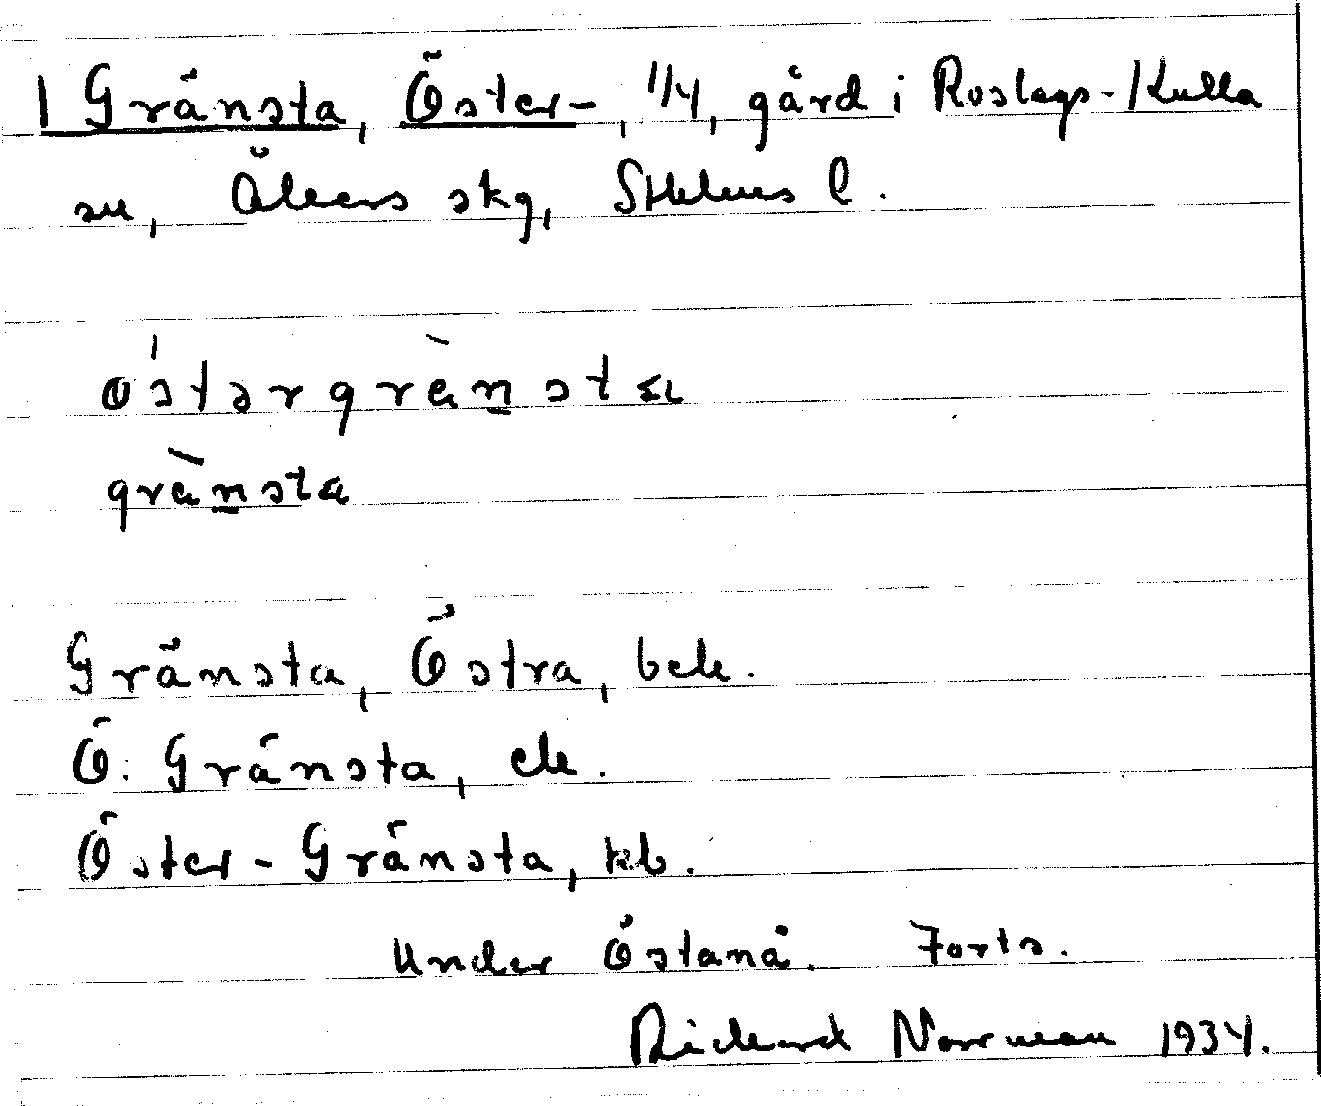 1 Gränsta, Öster-, 1/4, gård i Roslags-Kulla
sn, Åkers skg, Sthlms l.
östərgrènsta
grènsta
Gränsta, Östra, bek.
Ö. Gränsta, ek.
Öster-Gränsta, kb.
Under Östanå. Forts.
Rickard Norrman 1934.